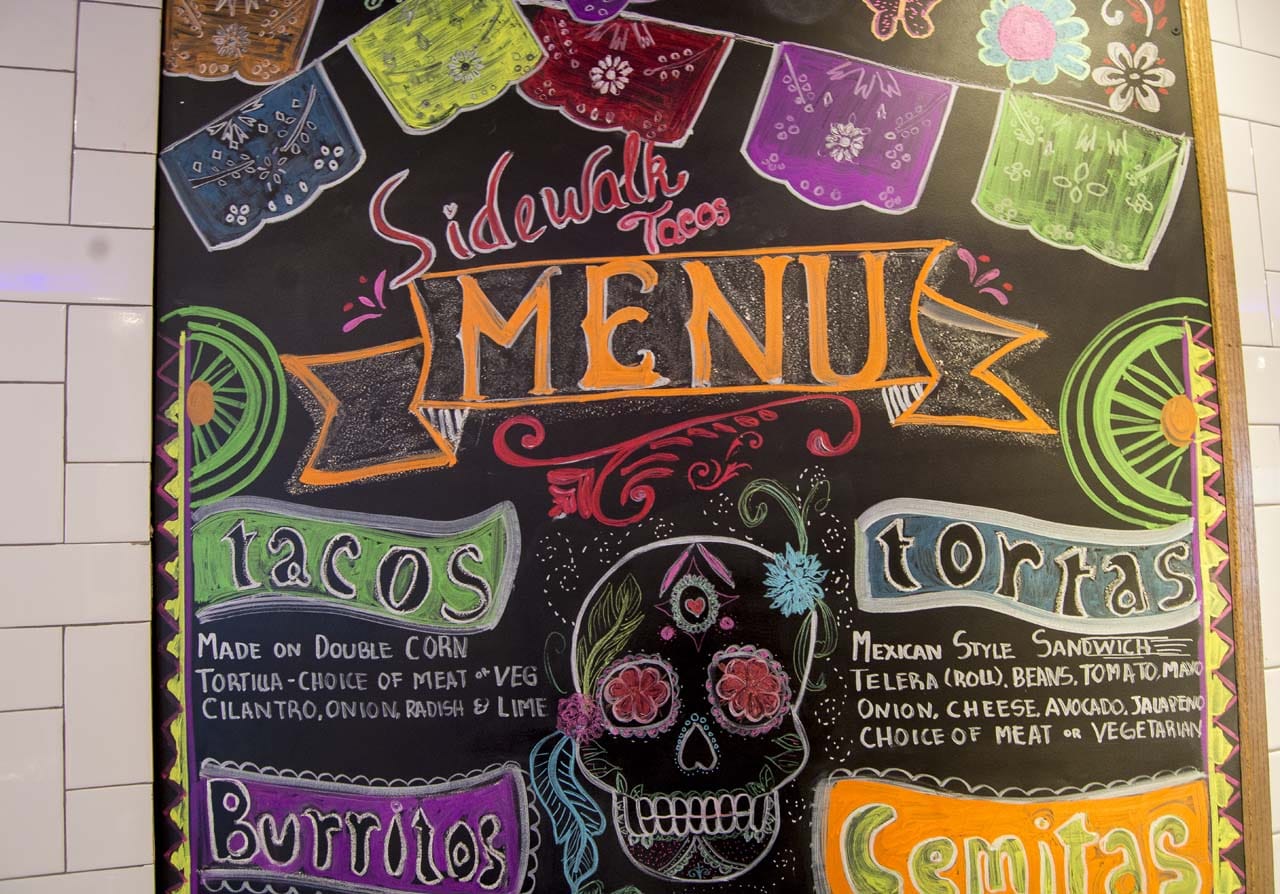 Sidewalk
Tacos
MENU
tacos
MADE ON DOUBLE CORN
TORTILLA - CHOICE OF MEAT or VEG
CILANTRO, ONION, RADISH & LIME
tortas
MEXICAN STYLE SANDWICH
TELERA (ROLL), BEANS, TOMATO, MAYO
ONION, CHEESE, AVOCADO, JALAPENO
CHOICE OF MEAT OR VEGETARIAN
Burritos
Cemitas